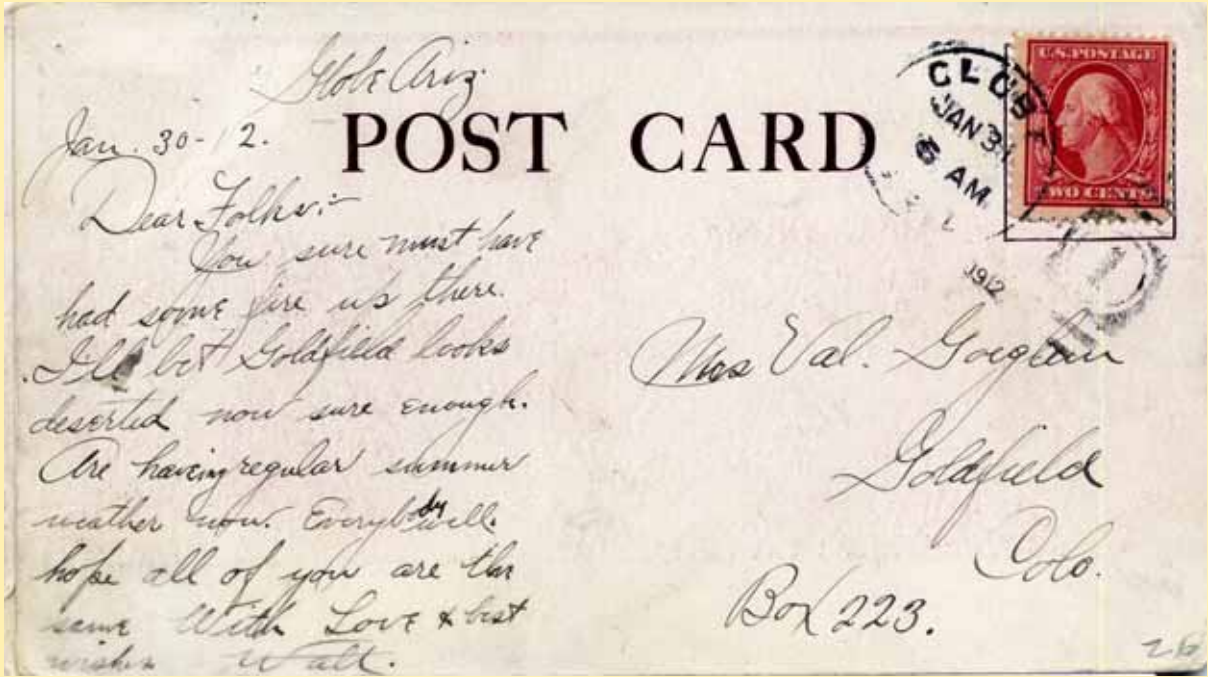 Globe Ariz.
Jan. 30-12.
POST CARD
Dear Folks:-
You sure must have
had some fire up there.
I'll bet Goldfield looks
deserted now sure enough.
Are having regular summer
weather now. Everybody well.
hope all of you are the
same With Love & best
wishes Walt.
GLOBE
JAN 31
6 AM
1912
U.S. POSTAGE
TWO CENTS
Mrs Val.
Goldfield
Colo.
Box 223.